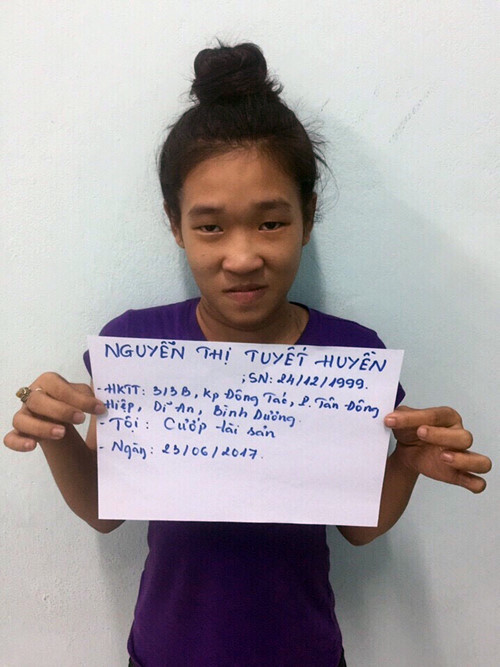 NGUYỄN THỊ TUYẾT HUYỀN
; SN: 24/12/1999.
- HKTT: 313B, Kp Đông Tác, P. Tân Đông
Hiệp, Dĩ An, Bình Dương.
- Tội: Cướp tài sản
- Ngày: 23/06/2017.